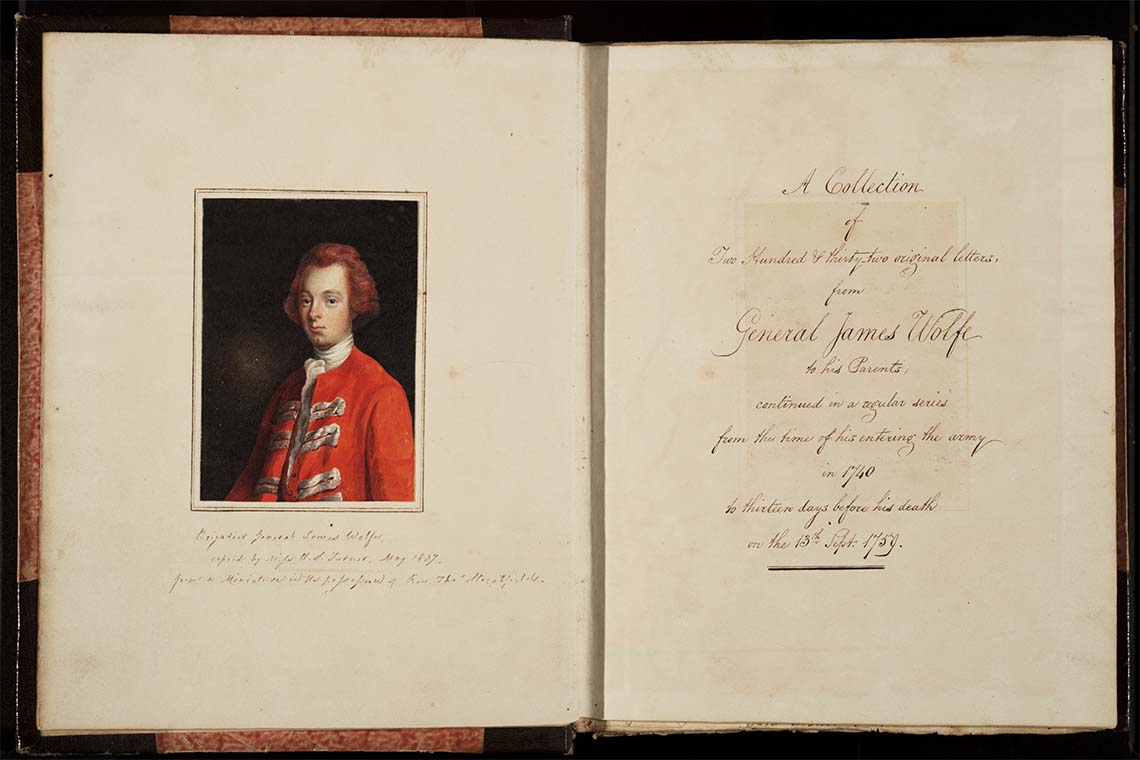 Brigadier General James Wolfe,
copied by Miss H. S. Turner, May 1837.
from a Miniature in the possession of Rev. Thos Streatfeild.
A Collection
of
Two Hundred & thirty-two original letters,
from
General James Wolfe
to his Parents,
continued in a regular series
from the time of his entering the army
in 1740
to thirteen days before his death
on the 13th Sept. 1759.